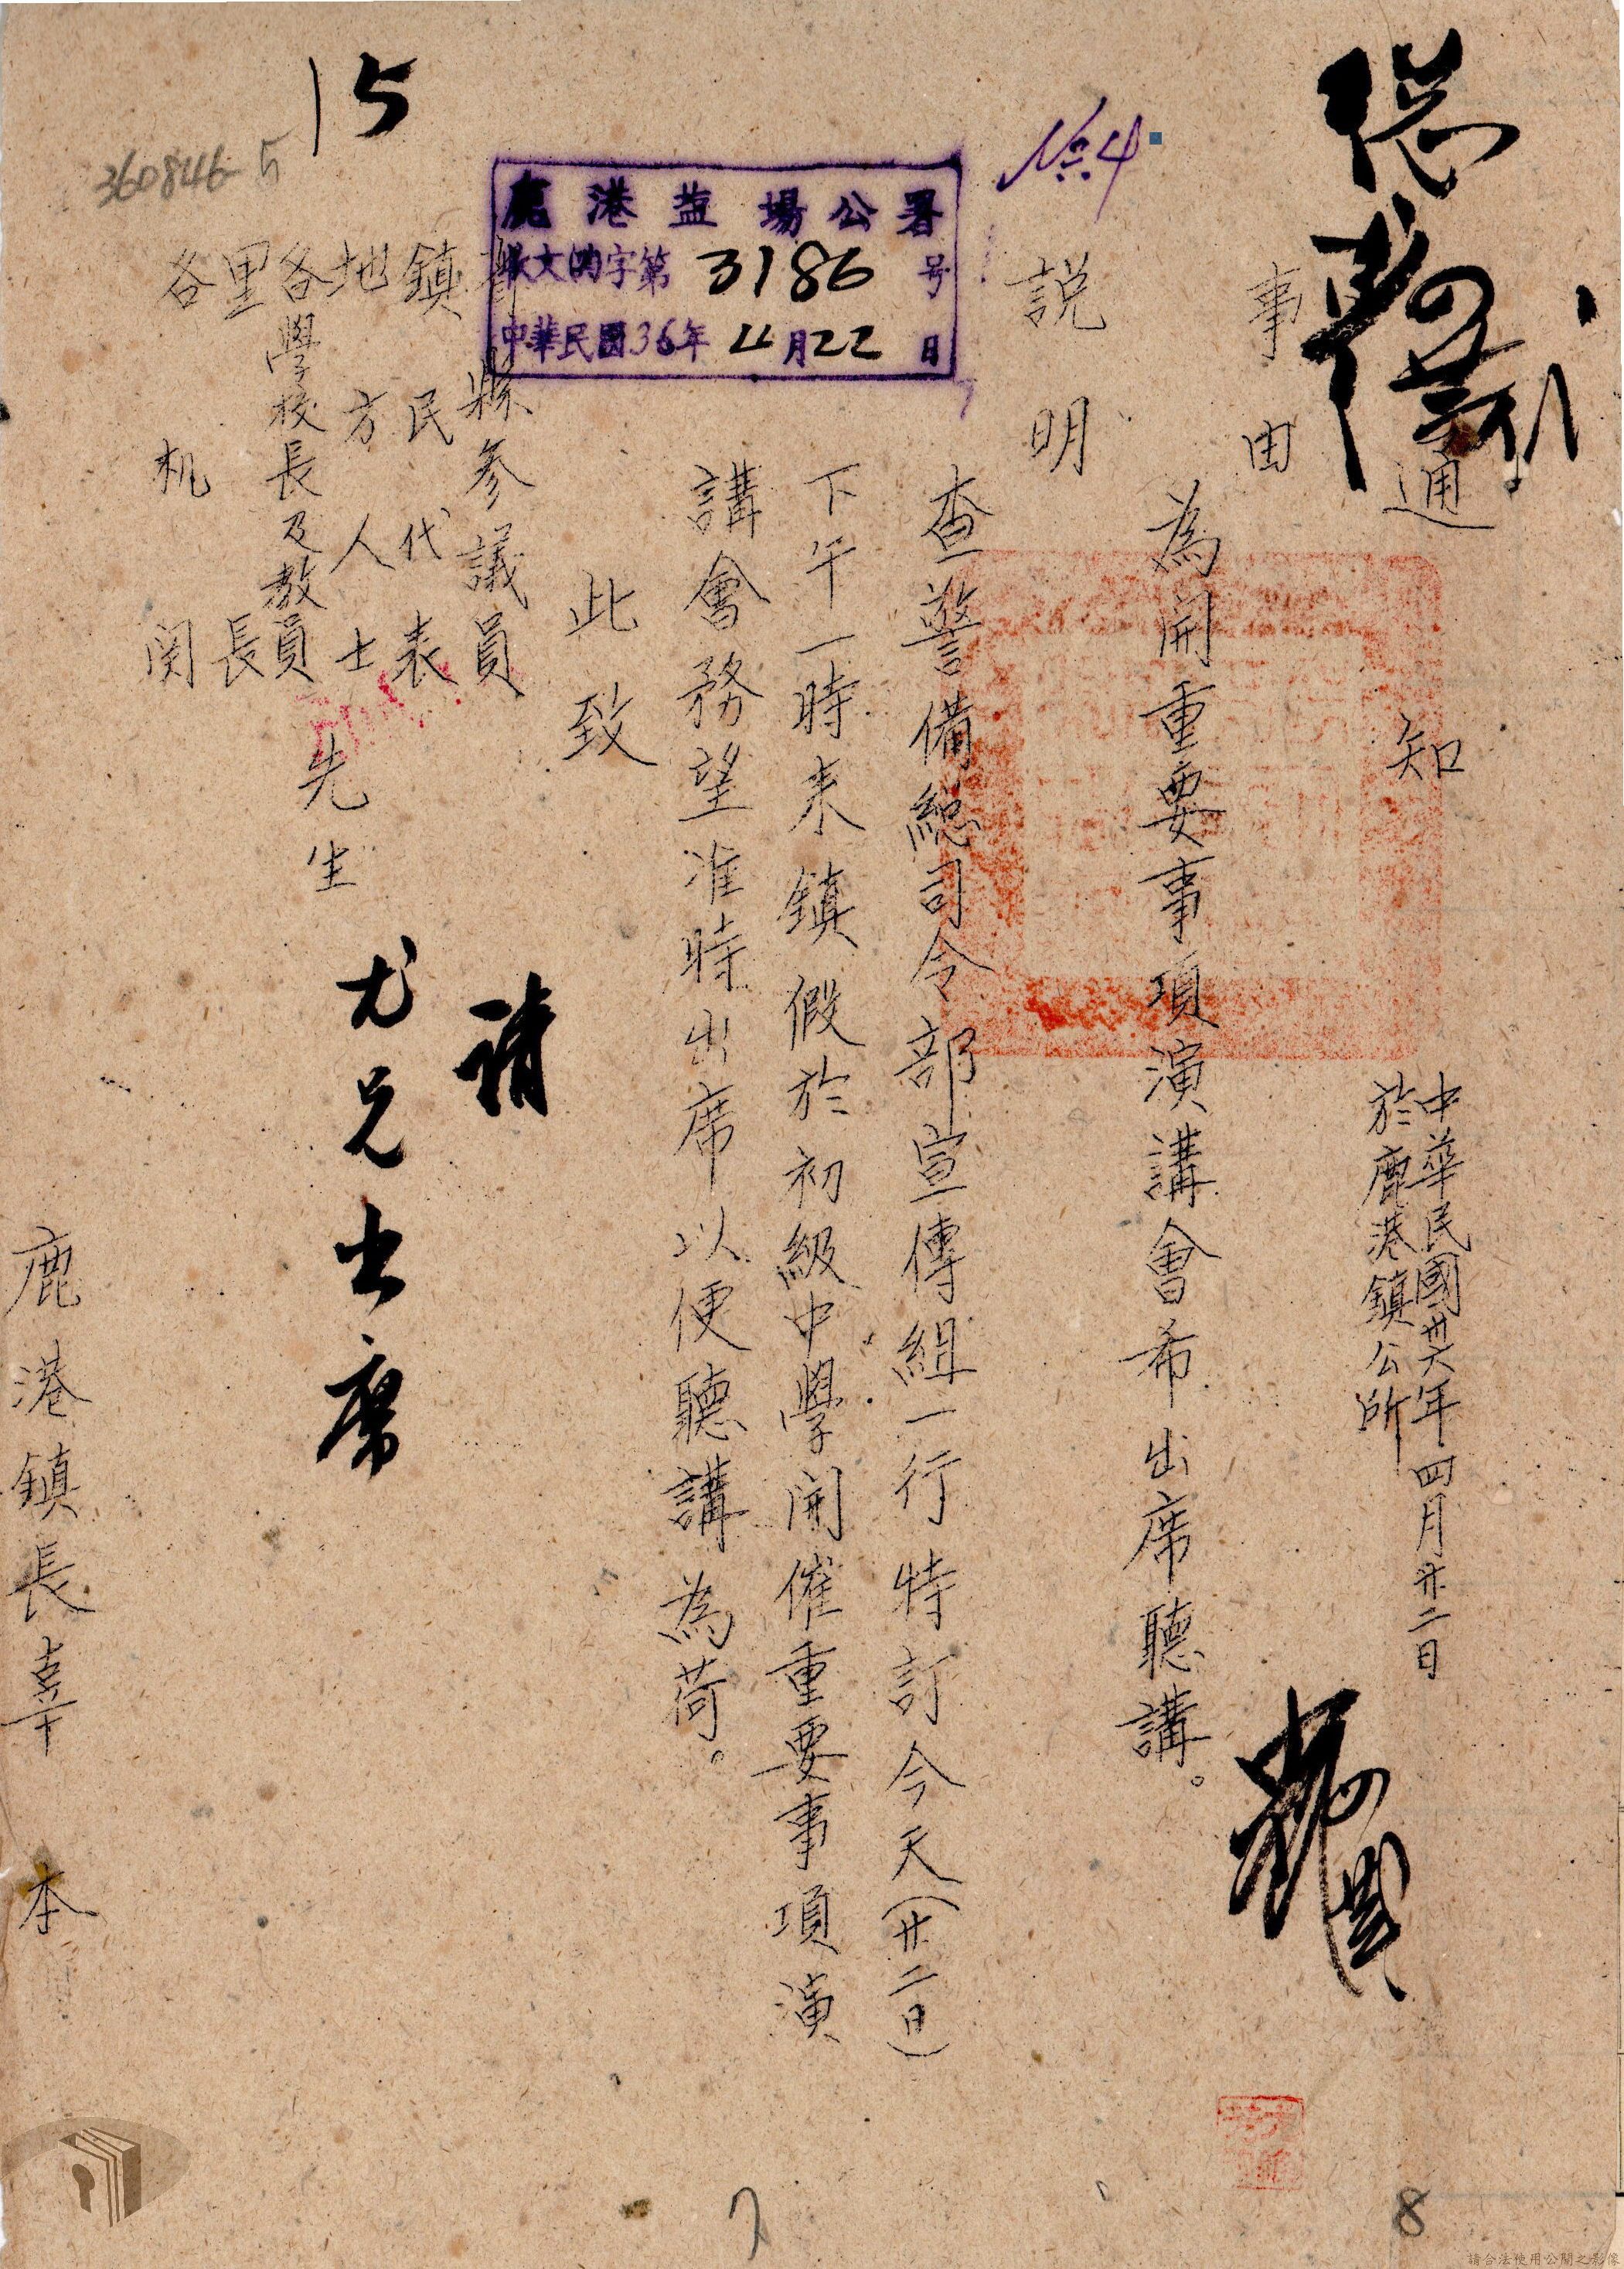 通知
中華民國卅六年四月廿二日
於鹿港鎮公所
事由
為開重要事項演講會希出席聽講。
説明
No.4
查警備總司令部宣傳組一行特訂今天(廿二日)
下午一時來鎮假於初級中學開催重要事項演
講會務望准時出席以便聽講為荷。
此致
縣參議員
鎮民代表
地方人士
各學校長及教員
里長
各机関
先生
請
尤兄出席
鹿港鎮長辜本
鹿港塩場公署
收文鹿字第3186号
中華民國36年4月22日
15
360846-5
7
8
請合法使用公開之影像